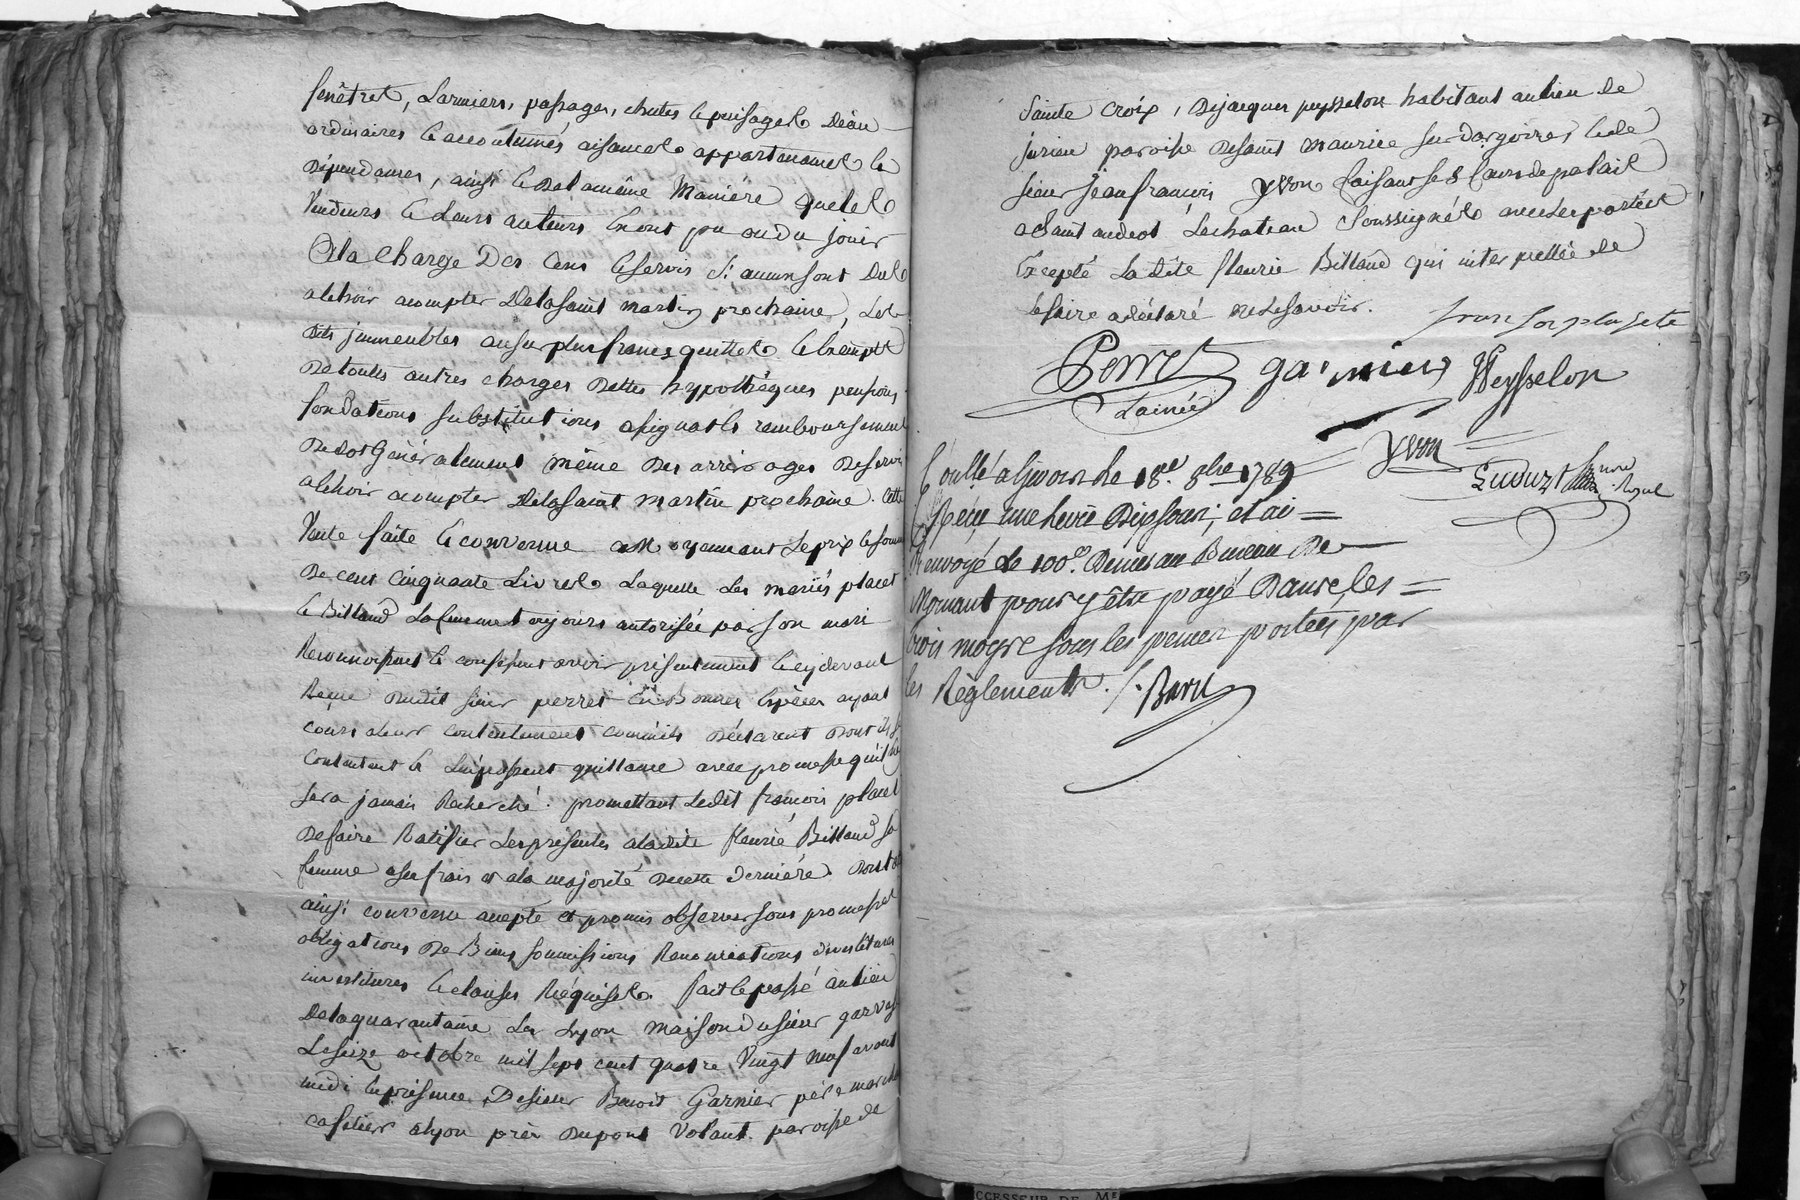 fenêtres, Larmiers, passages, chutes & puisages D'eau
ordinaires & accoutumés aisances appartenances &
Dépendances, ainsi & De la même Manière que les
Vendeurs & Leurs auteurs En ont pu ou du jouir
A la Charge Des Cens & servis si aucun sont Dus
a echoir acompter De la saint martin prochaine, Les
dits immeubles au surplus francs quittes & Exempts
De toutes autres charges Dettes hypothèques pensions
fondations substitutions assignats remboursement
De dot Généralement même Des arrérages De servis
a echoir acompter De la saint martin prochaine. Cette
Vente faite & convenue a Moyennant le prix & somme
De cent Cinquante Livres Laquelle Les mariés placet
& Billaud La femme toujours autorisée par son mari
Reconnoissent & confessent avoir présentement & cy devant
Reçue Dudit sieur perret En Bonnes Espèces ayant
cours a leur contentement comm'ils Déclarent Dont ils se
Contentent & L'en passent quittance avec promesse qu'il ne
sera jamais Recherché. promettant Ledit francois placet
De faire Ratifier Les présentes a ladite fleurie Billaud sa
femme a ses frais et a la majorité De cette dernière. Dont
ainsi convenu accepté et promis observer sous promesses
obligations De Biens soumissions Renonciations devestitures
investitures & clauses Réquises. fait & passé au lieu
De la quarantaine Les Lyon maison du sieur
Le seize octobre mil sept cent quatre Vingt neuf avant
midi En présence De sieur Benoit Garnier père marchand
cafetier a Lyon près Du pont Volant paroisse de
Sainte Croix, De jacques peysselon habitant au lieu de
jurieu paroisse De saint maurice sur dargoire, & de
sieur jean francois yvon faisant ses Cours de palait
a Saint andeol Le chateau Soussignés avec Les parties
Excepté La Dite fleurie Billaud qui interpellée de
Le faire a déclaré ne Le savoir.
Perret
L'ainé
garnier
Peysselon
yvon
Royal
Con.lé a Givors le 18.e 8bre 1789
Reçu une livre Dix sous; et ai
Renvoyé Le 100.e Denier au Bureau De
Mornant pour y être payé Dans les
trois moys sous les peines portées par
les Règlements.